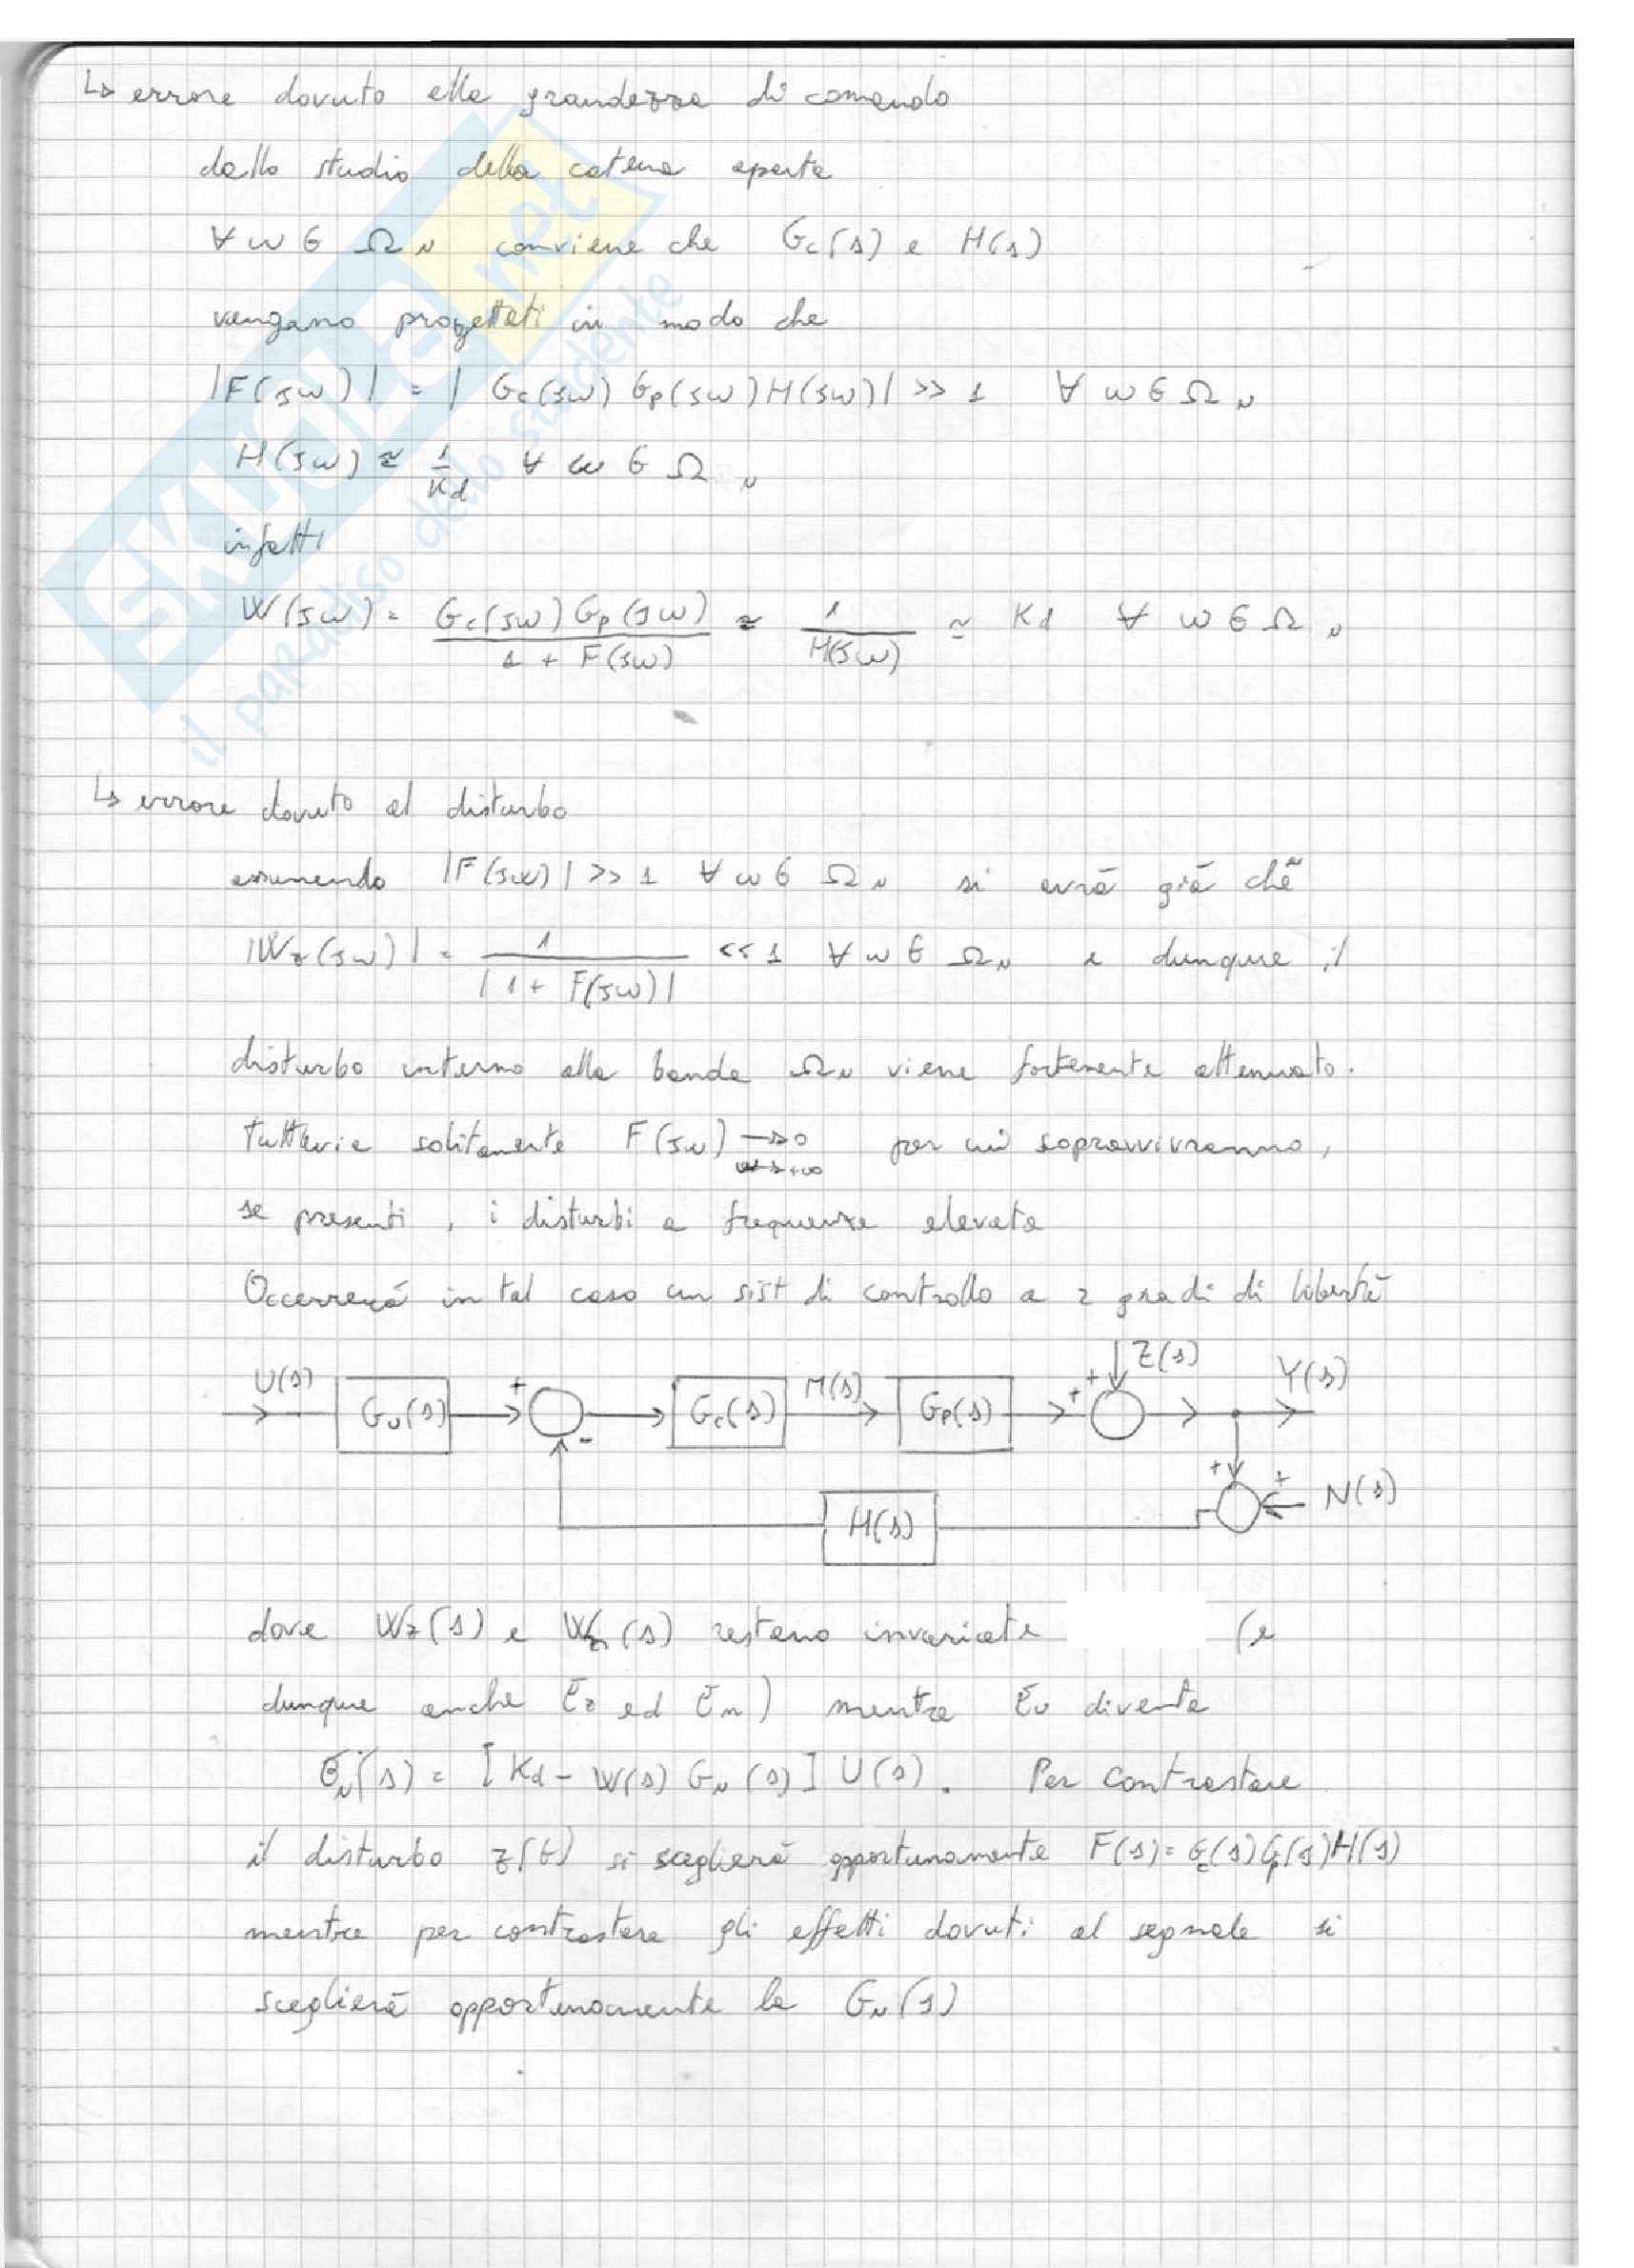 ↳ errore dovuto alla grandezza di comando
dallo studio della catena aperta
∀ ω ∈ Ω_u conviene che G_c(s) e H(s)
vengano progettati in modo che
|F(jω)| = | G_c(jω) G_p(jω) H(jω)| >> 1 ∀ ω ∈ Ω_u
H(jω) ≈ 1/K_d ∀ ω ∈ Ω_u
infatti
W(jω) = G_c(jω) G_p(jω) / 1 + F(jω) ≈ 1 / H(jω) ≈ K_d ∀ ω ∈ Ω_u
↳ errore dovuto al disturbo
assumendo |F(jω)| >> 1 ∀ ω ∈ Ω_u si avrà già che
|W_z(jω)| = 1 / |1 + F(jω)| << 1 ∀ ω ∈ Ω_u e dunque il
disturbo interno alla banda Ω_u viene fortemente attenuato.
Tuttavia solitamente F(jω) → 0 ω→+∞ per cui sopravvivranno,
se presenti, i disturbi a frequenze elevate
Occorrerà in tal caso un sist di controllo a 2 gradi di libertà
U(s) G_u(s) + - G_c(s) M(s) G_p(s) + + Z(s) Y(s)
H(s) + + N(s)
dove W_z(s) e W_n(s) restano invariate (e
dunque anche E_z ed E_n) mentre E_u diventa
E_u(s) = [K_d - W(s) G_u(s)] U(s). Per contrastare
il disturbo z(t) si sceglierà opportunamente F(s) = G_c(s) G_p(s) H(s)
mentre per contrastare gli effetti dovuti al segnale si
sceglierà opportunamente la G_u(s)
SKUOLA.net
il paradiso dello studente